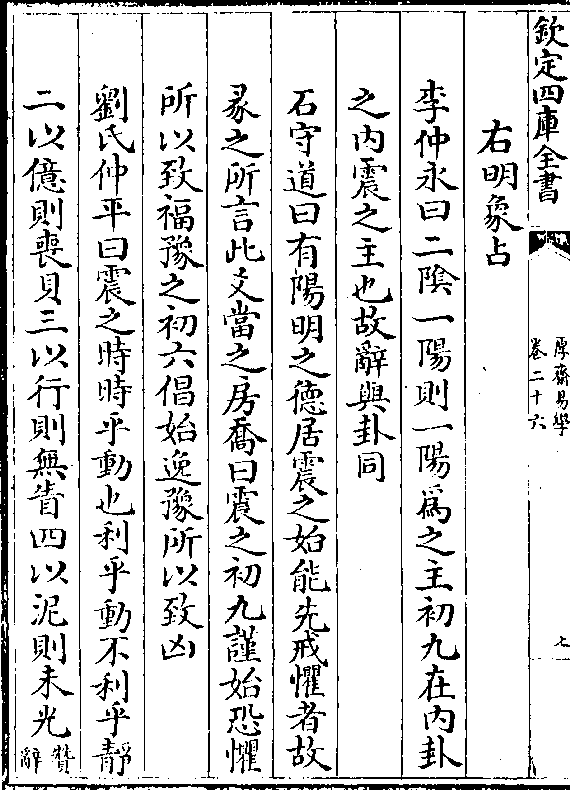 欽定四庫全書
厚齋易學
卷二十六
七
右明象占
李仲永曰二陰一陽則一陽爲之主初九在内卦
之内震之主也故辭與卦同
石守道曰有陽明之德居震之始能先戒懼者故
彖之所言此爻當之房喬曰震之初九謹始恐懼
所以致福豫之初六倡始逸豫所以致凶
劉氏仲平曰震之時時乎動也利乎動不利乎靜
二以億則喪貝三以行則無眚四以泥則未光贊
辭